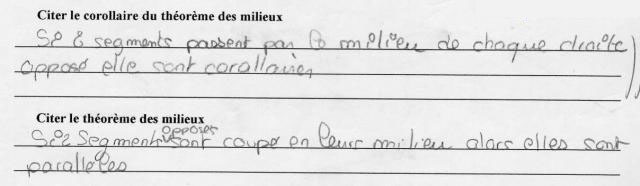 Citer le corollaire du théorème des milieux
Si 2 segments passent par le milieu de chaque droite
opposé elle sont corallaires
Citer le théorème des milieux
Si 2 Segments opposés sont coupé en leurs milieu alors elles sont
parallèles